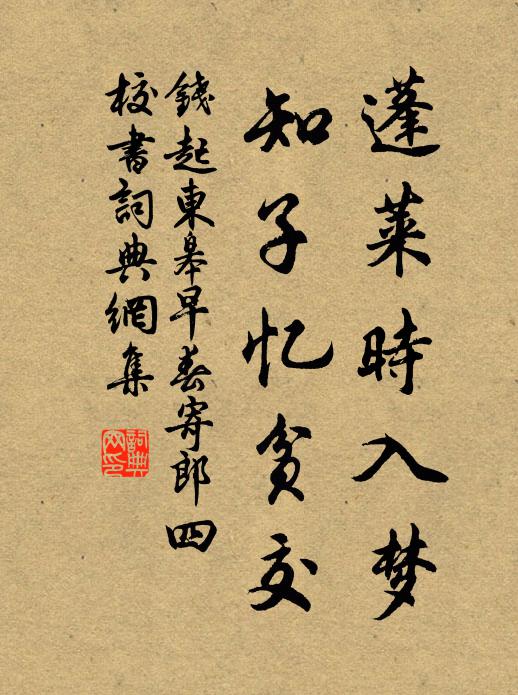 蓬莱時入梦
知子忆贫交
錢起東皋早春寄郎四
校書詞典網集
詞典
网印